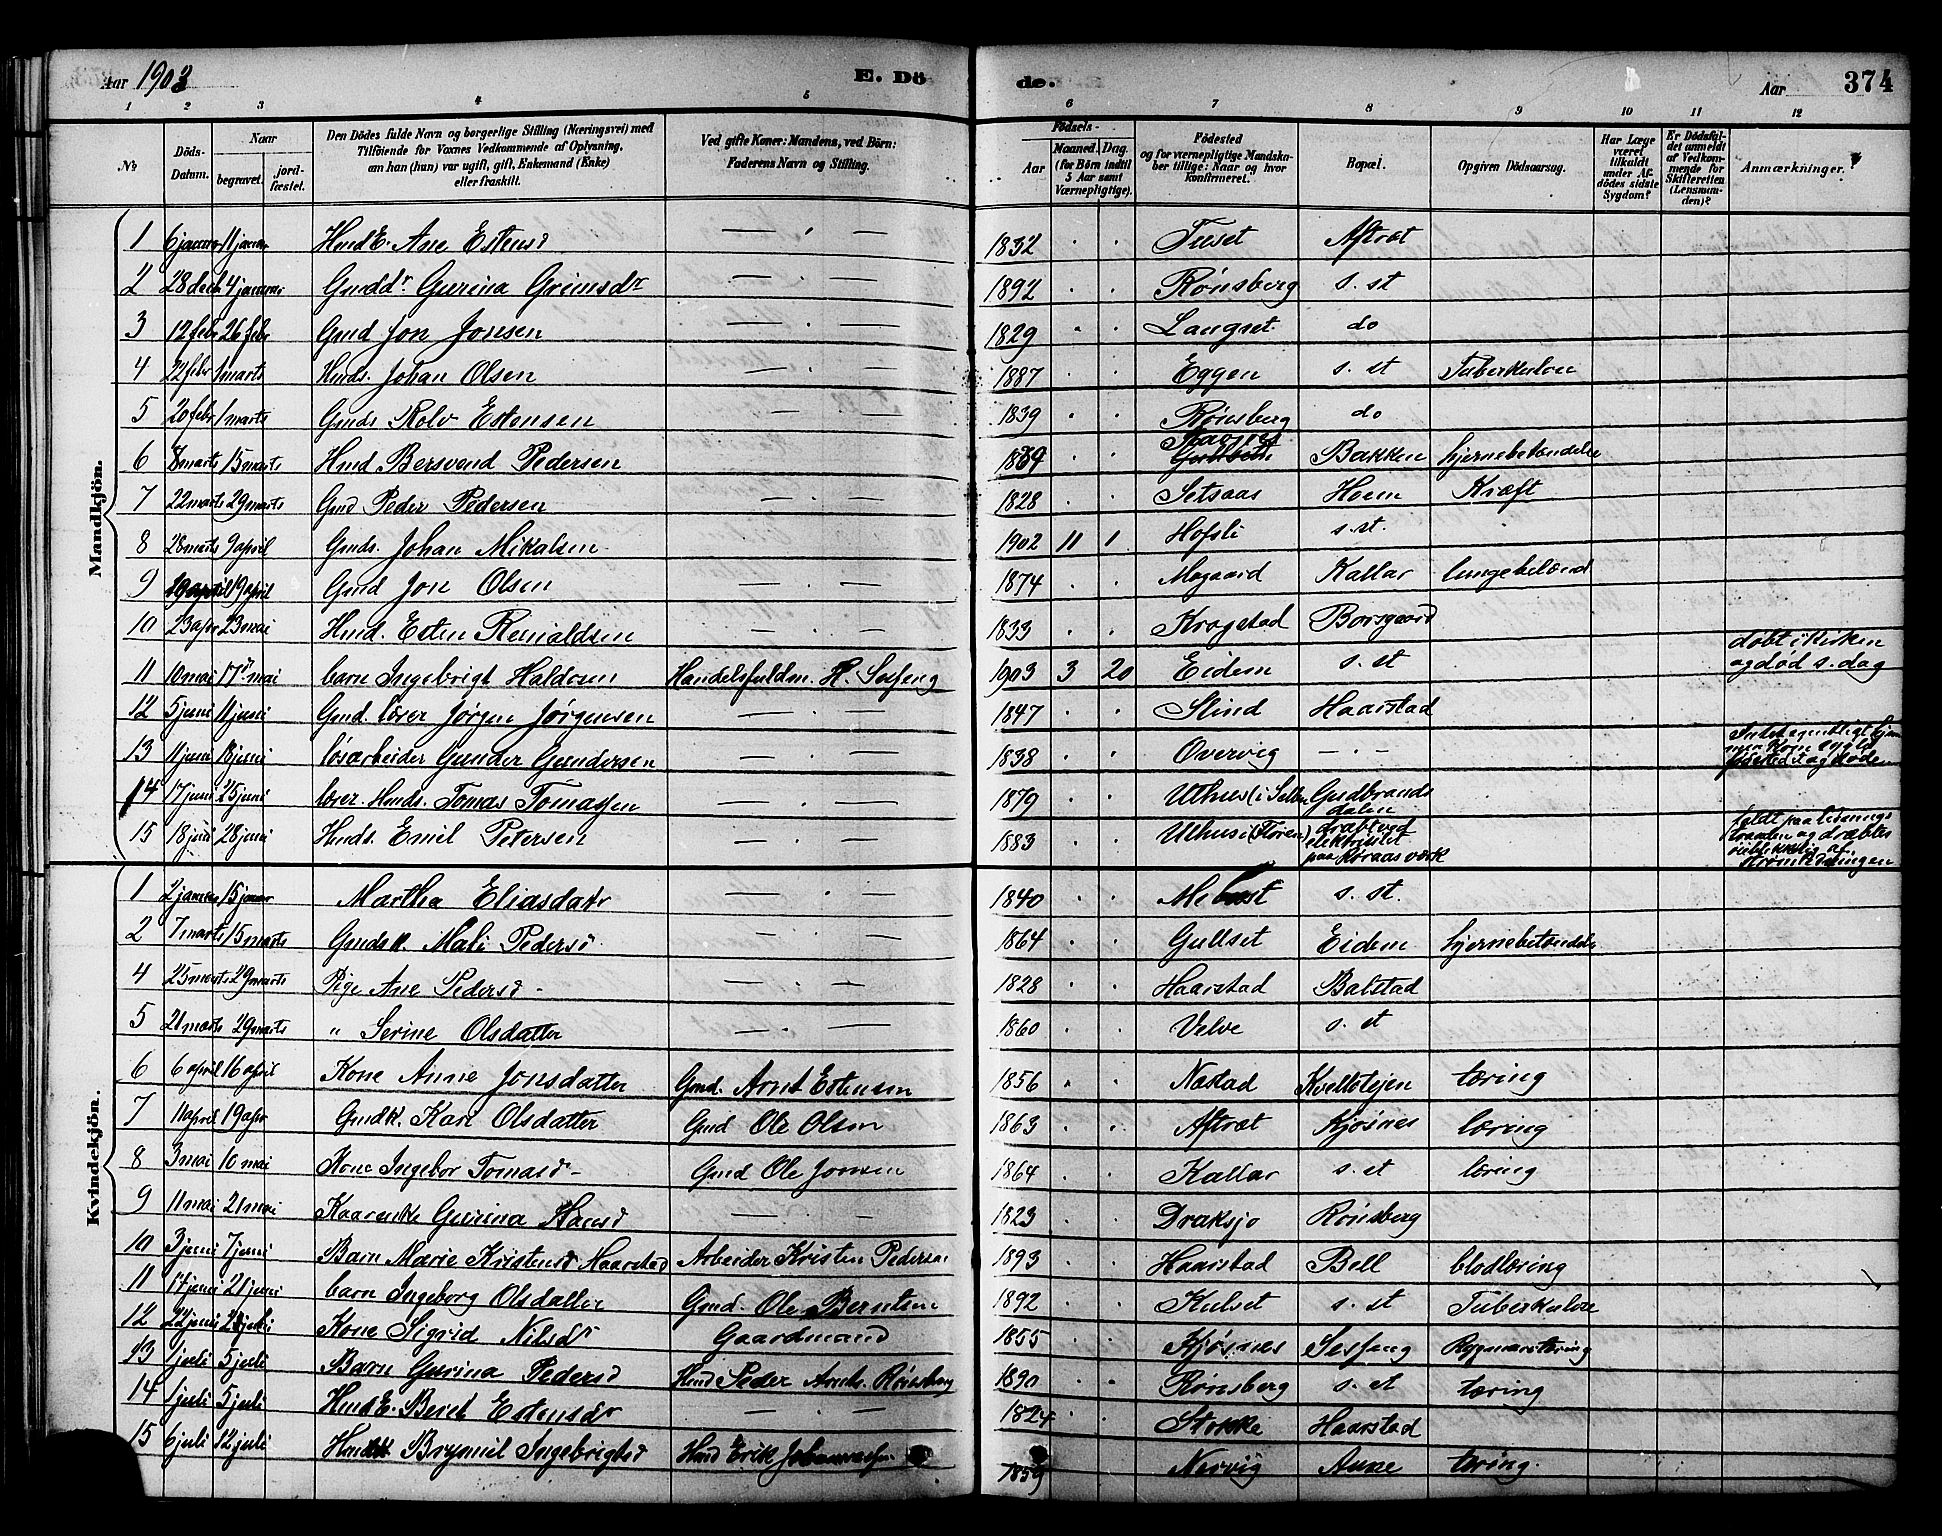 Aar 1903 E. Dö de. Aar 374
1 2 3 4 5 6 7 8 9 10 11 12
№ Döds-Datum. Naar begravet. jordfæstet. Den Dödes fulde Navn og borgerlige Stilling (Næringsvei) med Tilföiende for Voxnes Vedkommende af Oplysning, om han (hun) var ugift, gift, Enkemand (Enke) eller fraskilt. Ved gifte Koner: Mandens, ved Börn: Faderens Navn og Stilling. Födsels- Aar Maaned. Dag. (for Börn indtil 5 Aar samt Værnepligtige). Födested og for værnepligtige Mandskaber tillige: Naar og hvor konfirmeret. Bopæl. Opgiven Dödsaarsag. Har Læge været tilkaldt under Afdödes sidste Sygdom? Er Dödsfaldet anmeldt af Vedkommende for Skifteretten (Lensmanden)? Anmærkninger.
Mandkjön.
1 6 januar 11 januar Hmd E. Ane Estensd — . — 1832 . . Tuset Aftret
2 28 decb 4 januar Gmdd r Gurina Grimsdr — . — 1892 . . Rønsberg s. st
3 12 febr 26 febr Gmd Jon Jonsen — . — 1829 . . Langset do
4 22 febr 1 marts Hmds. Johan Olsen — . — 1887 . . Eggen s. st Tuberkulose
5 20 febr 1 marts Gmds Rolv Estensen — . — 1839 . . Rønsberg do
6 8 marts 15 marts Hmd Bersvend Pedersen — . — 1869 . . Bakken hjernebetændelse
7 22 marts 29 marts Gmd Peder Pedersen — . — 1828 . . Setsaas Hoem Kræft
8 28 marts 9 april Gmds. Johan Mikalsen — . — 1902 11 1 Hofsli s. st.
9 10 april 19 april Gmd Jon Olsen — . — 1874 . . Mogaard Kallar lungebetænd
10 23 apr 23 mai Hmd. Esten Renaldsen — . — 1833 . . Kragstad Borsgaard
11 10 mai 17 mai barn Ingebrigt Haldosen Handelsfuldm. H. Sesseng 1903 3 20 Eidem s. st døbt i kirken og død s. dag
12 5 juni 11 juni Gmd. lærer Jørgen Jørgensen — . — 1847 . . Slind Haarstad
13 11 juni 18 juni løsarbeider Gunder Gundersen — 1838 . . Overvig — . —
14 17 juni 25 juni lærer Hmds. Tomas Tomassen — . — 1879 . . Uthus (i Selbu Gudbrandsdalen
15 18 juni 28 juni Hmds. Emil Petersen — . — 1883 . . Uthus i (Floren) dræbt ved elektricitet paa Røraas værk faldt paa lednings traaden og dræbtes øieblikklig af strømledningen
Kvindekjön.
1 2 januar 15 januar Martha Eliasdatr — . — 1840 . . s. st.
2 7 marts 15 marts Gmdsk. Mali Pedersd — . — 1864 . . Gullset Eidem hjernebetændelse
4 25 marts 29 marts Pige Ane Pedersd — — 1828 . . Haarstad Balstad
5 21 marts 29 marts " Serine Olsdatter — . — 1860 . . Velve s. st
6 6 april 16 april Kone Anne Jonsdatter Gmd. Arnt Estensen 1856 . . Nastad Kvelloteien tæring
7 11 april 19 apr Gmdk. Kari Olsdatter Gmd Ole Olsen 1863 . . Aftret Kjøsnes tæring
8 3 mai 10 mai Kone Ingebor Tomasd Gmd Ole Jonsen 1864 . . Kallar s. st tæring
9 11 mai 21 mai Kaarenke Gurina Hansd — . — 1823 . . Draksjo Rønsberg
10 3 juni 7 juni Barn Marie Kristensd Haarstad Arbeider Kristen Pedersen 1893 . . Haarstad Bell blodtæring
11 17 juni 21 juni barn Ingeborg Olsdatter Gmd. Ole Berntsen 1892 . . Kulset s. st Tuberkulose
12 22 juni 28 juni Kone Sigrid Nilsdr Gaardmand 1855 . . Kjøsnes Sesseng Rygmarvstæring
13 1 juli 5 juli Barn Gurina Pedersd Hmd Peder Arnts. Rønsberg 1890 . . Rønsberg s. st tæring
14 1 juli 5 juli Hmd E. Beret Estensdr — . — 1824 . . Stokke Haarstad
15 6 juli 12 juli Brynnil Ingebrigtsd Hmd Erik Johannessen 1859 . . Nervig Aune tæring.